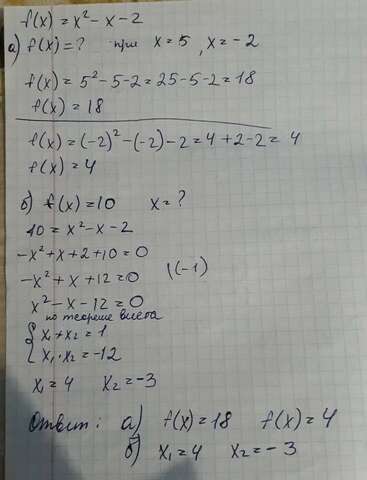 f(x) = x² - x - 2
а) f(x) = ? при x = 5, x = -2
f(x) = 5² - 5 - 2 = 25 - 5 - 2 = 18
f(x) = 18
f(x) = (-2)² - (-2) - 2 = 4 + 2 - 2 = 4
f(x) = 4
б) f(x) = 10 x = ?
10 = x² - x - 2
-x² + x + 2 + 10 = 0
-x² + x + 12 = 0 |(-1)
x² - x - 12 = 0
по теореме Виета
{ x₁ + x₂ = 1
{ x₁ · x₂ = -12
x₁ = 4 x₂ = -3
Ответ: а) f(x) = 18 f(x) = 4
б) x₁ = 4 x₂ = -3